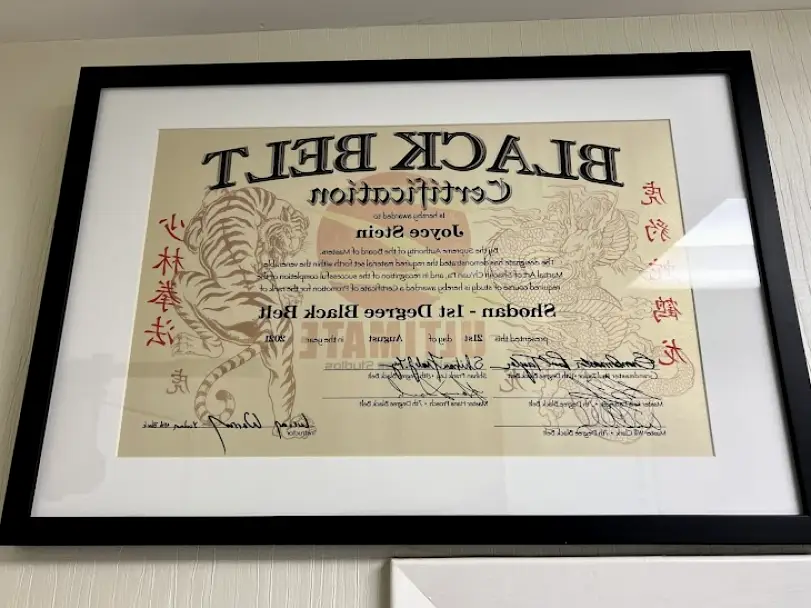 BLACK BELT
Certification
Is hereby awarded to
Joyce Stein
By the Supreme Authority of the Board of Masters
The designate has demonstrated the required material set forth within the venerable
Martial Art of Shaolin Ch'uan Fa, and in recognition of the successful completion of the
required course of study is hereby awarded a Certificate of Promotion for the rank of
Shodan - 1st Degree Black Belt
presented this 21st day of August in the year 2021
ULTIMATE
Studios
Grandmaster • 10th Degree Black Belt
Shihan • 8th Degree Black Belt
Master • 7th Degree Black Belt
Master Hans Prosch • 7th Degree Black Belt
Master Will Clark • 7th Degree Black Belt
Instructor
虎豹蛇鶴龙
少林拳法
虎